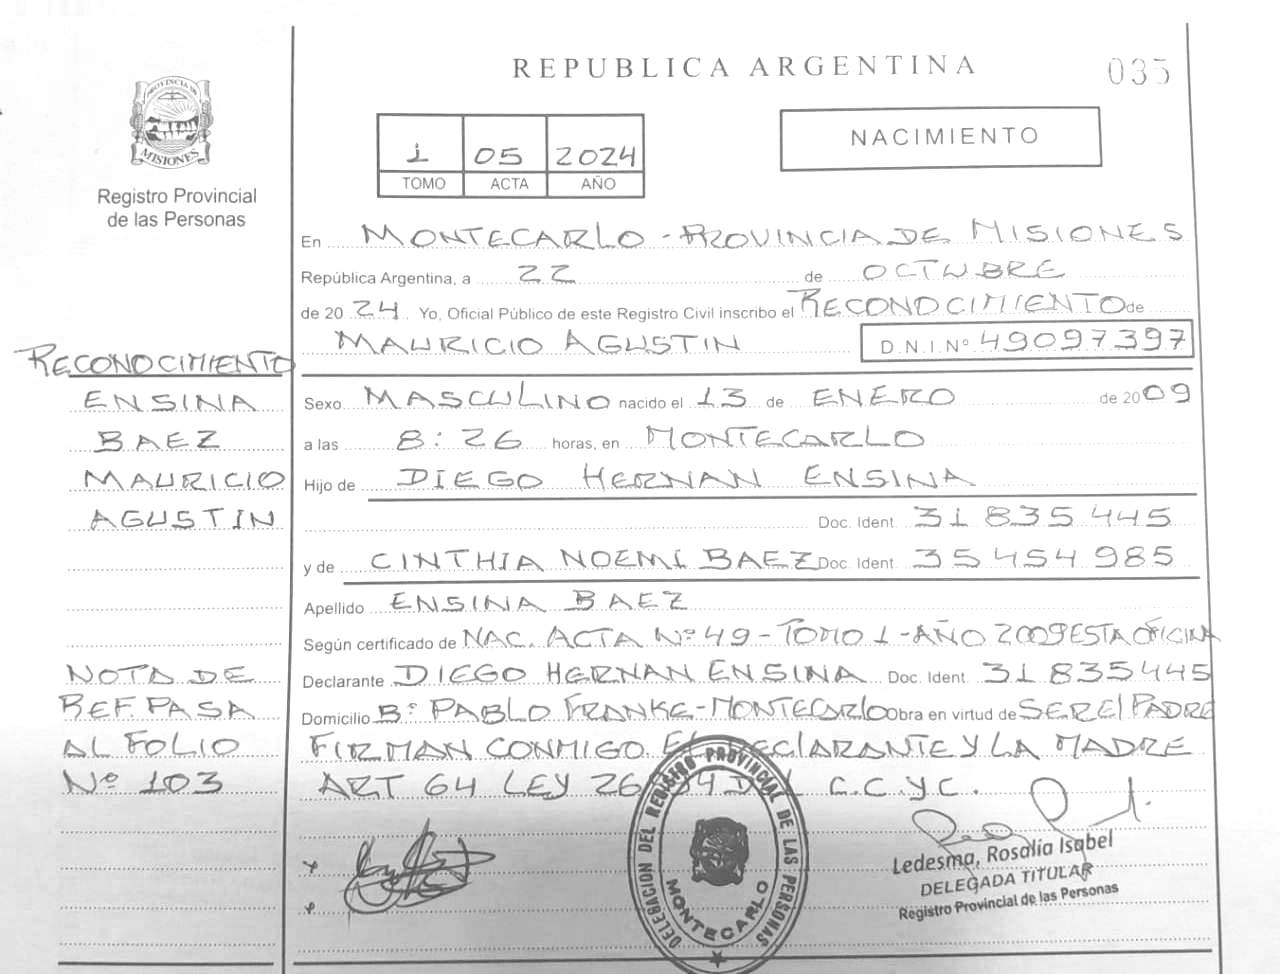 REPUBLICA ARGENTINA
035
PROVINCIA DE
MISIONES
Registro Provincial
de las Personas
1 05 2024
TOMO ACTA AÑO
NACIMIENTO
En MONTECARLO - PROVINCIA DE MISIONES
República Argentina, a 22 de OCTUBRE
de 2024. Yo, Oficial Público de este Registro Civil inscribo el RECONOCIMIENTO de
MAURICIO AGUSTIN D.N.I. Nº 49097397
Sexo MASCULINO nacido el 13 de ENERO de 2009
a las 8:26 horas, en MONTECARLO
Hijo de DIEGO HERNAN ENSINA
Doc. Ident. 31835445
y de CINTHIA NOEMI BAEZ Doc. Ident. 35454985
Apellido ENSINA BAEZ
Según certificado de NAC. ACTA Nº 49 - TOMO 1 - AÑO 2009 ESTA OFICINA
Declarante DIEGO HERNAN ENSINA Doc. Ident. 31835445
Domicilio Bº PABLO FRANKE - MONTECARLO Obra en virtud de SER El PADRE
FIRMAN CONMIGO EL DEClARANTE Y LA MADRE
ART 64 LEY C.C.YC.
RECONOCIMIENTO
ENSINA
BAEZ
MAURICIO
AGUSTIN
NOTA DE
REF. PASA
AL FOLIO
Nº 103
DELEGACION DEL REGISTRO PROVINCIAL DE LAS PERSONAS
MONTECARLO
Ledesma, Rosalía Isabel
DELEGADA TITULAR
Registro Provincial de las Personas